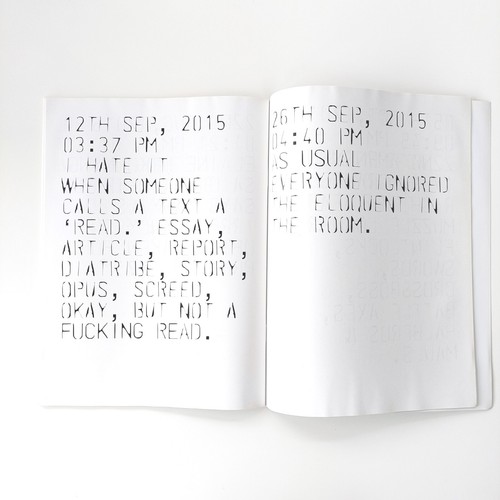 12TH SEP, 2015
03:37 PM
I HATE IT
WHEN SOMEONE
CALLS A TEXT A
‘READ.’ ESSAY,
ARTICLE, REPORT,
DIATRIBE, STORY,
OPUS, SCREED,
OKAY, BUT NOT A
FUCKING READ.
26TH SEP, 2015
04:40 PM
AS USUAL
EVERYONE IGNORED
THE ELOQUENT IN
THE ROOM.